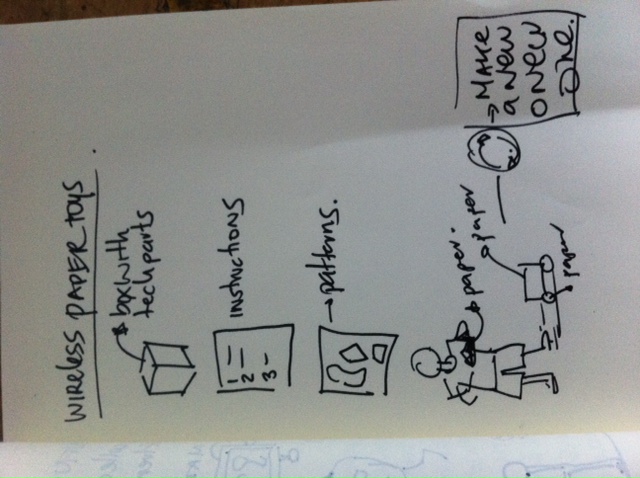 WIRELESS PAPER TOYS.
box with
tech parts
1
2
3
instructions
→ patterns.
paper.
paper
paper
→ MAKE
a NEW
O NEW
ONE.